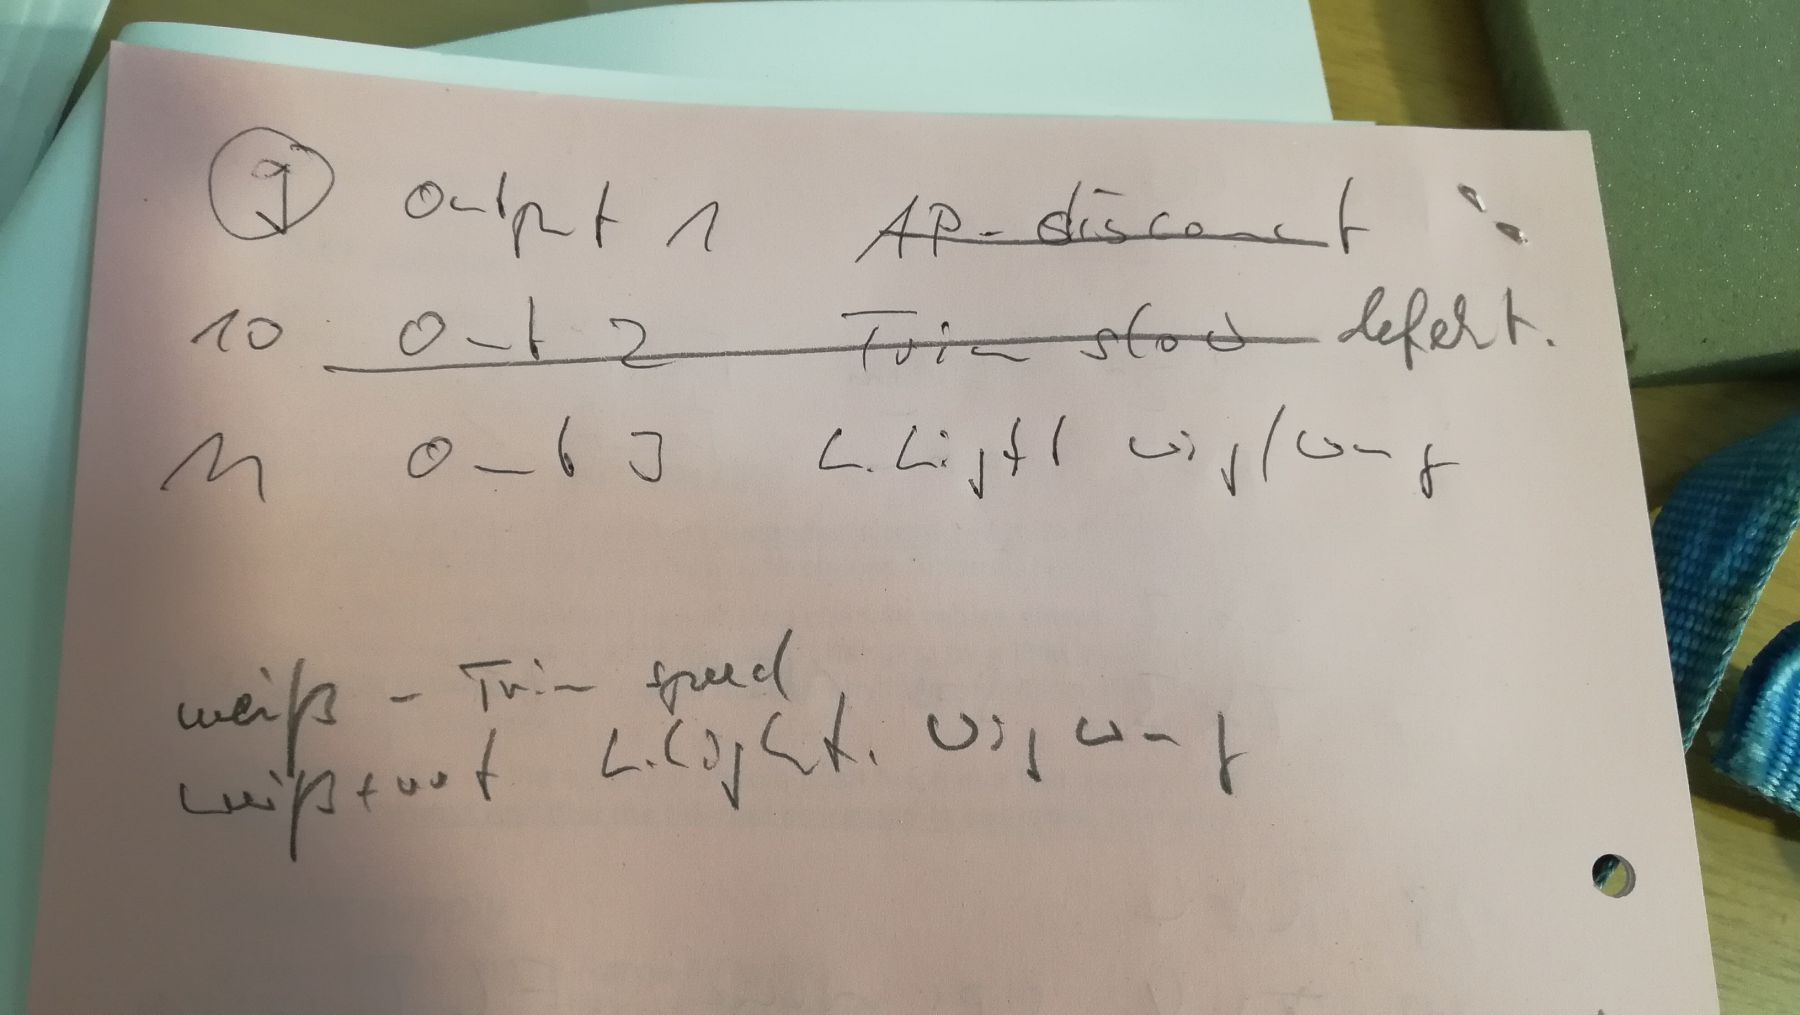 9 Output 1 AP-disconnect
10 Out 2 Trim slow defekt.
11 Out 3 L.Light wig/wag
weiß - Trim speed
weiß+rot L.Light. wigwag